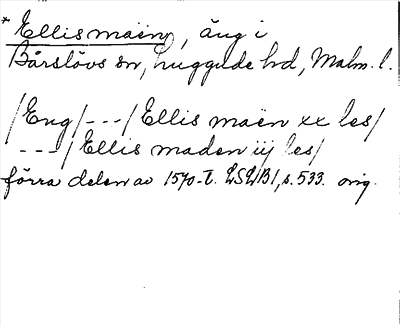 * Ellis maën, äng i
Bårslövs sn, Luggude hd, Malm. l.
/Eng/---/Ellis maen xx les/
---/Ellis maden iij les/
förra delen av 1570-t. LSLB1, s. 533. orig.